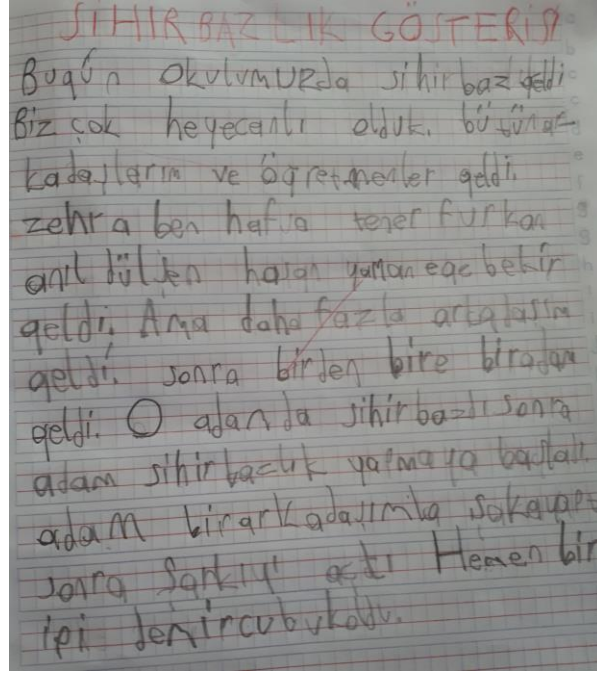 SİHİRBAZLIK GÖSTERİSİ
Bugün Okulumuzda sihirbaz geldi
Biz çok heyecanlı olduk. bütün ar
kadaşlarım ve öğretmenler geldi.
zehra ben hafsa tener furkan
anıl hasan yaman ege bekir
geldi. Ama daha fazla arkadaşım
geldi. sonra birden bire biradam
geldi. O adamda sihirbazdı sonra
adam sihirbazlık yapmaya başladı.
adam birarkadaşımla şakayaptı
sonra Şarkıyı açtı Hemen bir
ipi demircubukoldu.